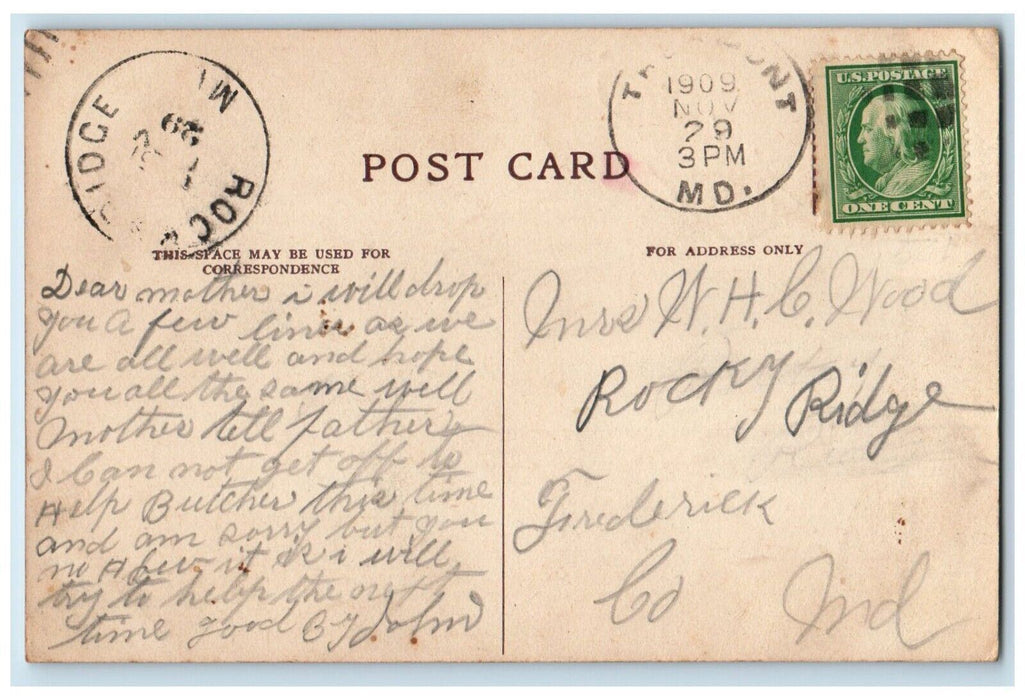 ROCKY RIDGE
29
M
1909
NOV
29
3 PM
MD.
U.S. POSTAGE
ONE CENT
POST CARD
THIS SPACE MAY BE USED FOR
CORRESPONDENCE
FOR ADDRESS ONLY
Dear mother i will drop
you A few lines as we
are all well and hope
you all the same well
Mother tell father
I Can not get off to
Help Butcher this time
and am sorry but you
no How it is i will
try to help the next
time good By John
Mrs W. H. C. Wood
Rocky Ridge
Frederick
Co Md